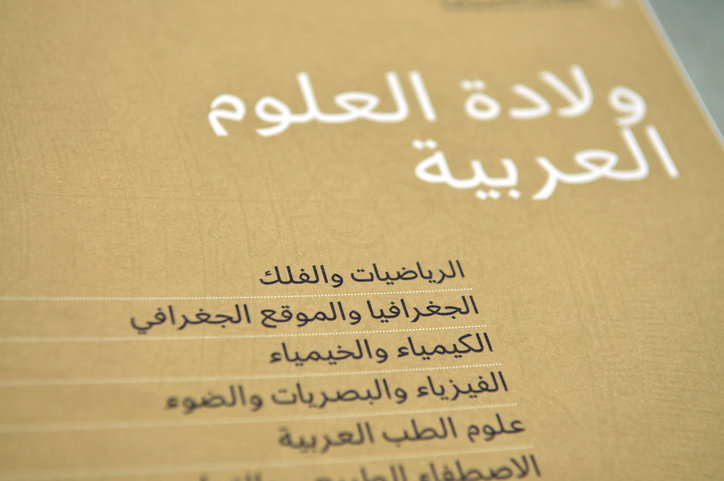 ولادة العلوم
العربية
الرياضيات والفلك
الجغرافيا والموقع الجغرافي
الكيمياء والخيمياء
الفيزياء والبصريات والضوء
علوم الطب العربية
الاصطفاء الطبيعي